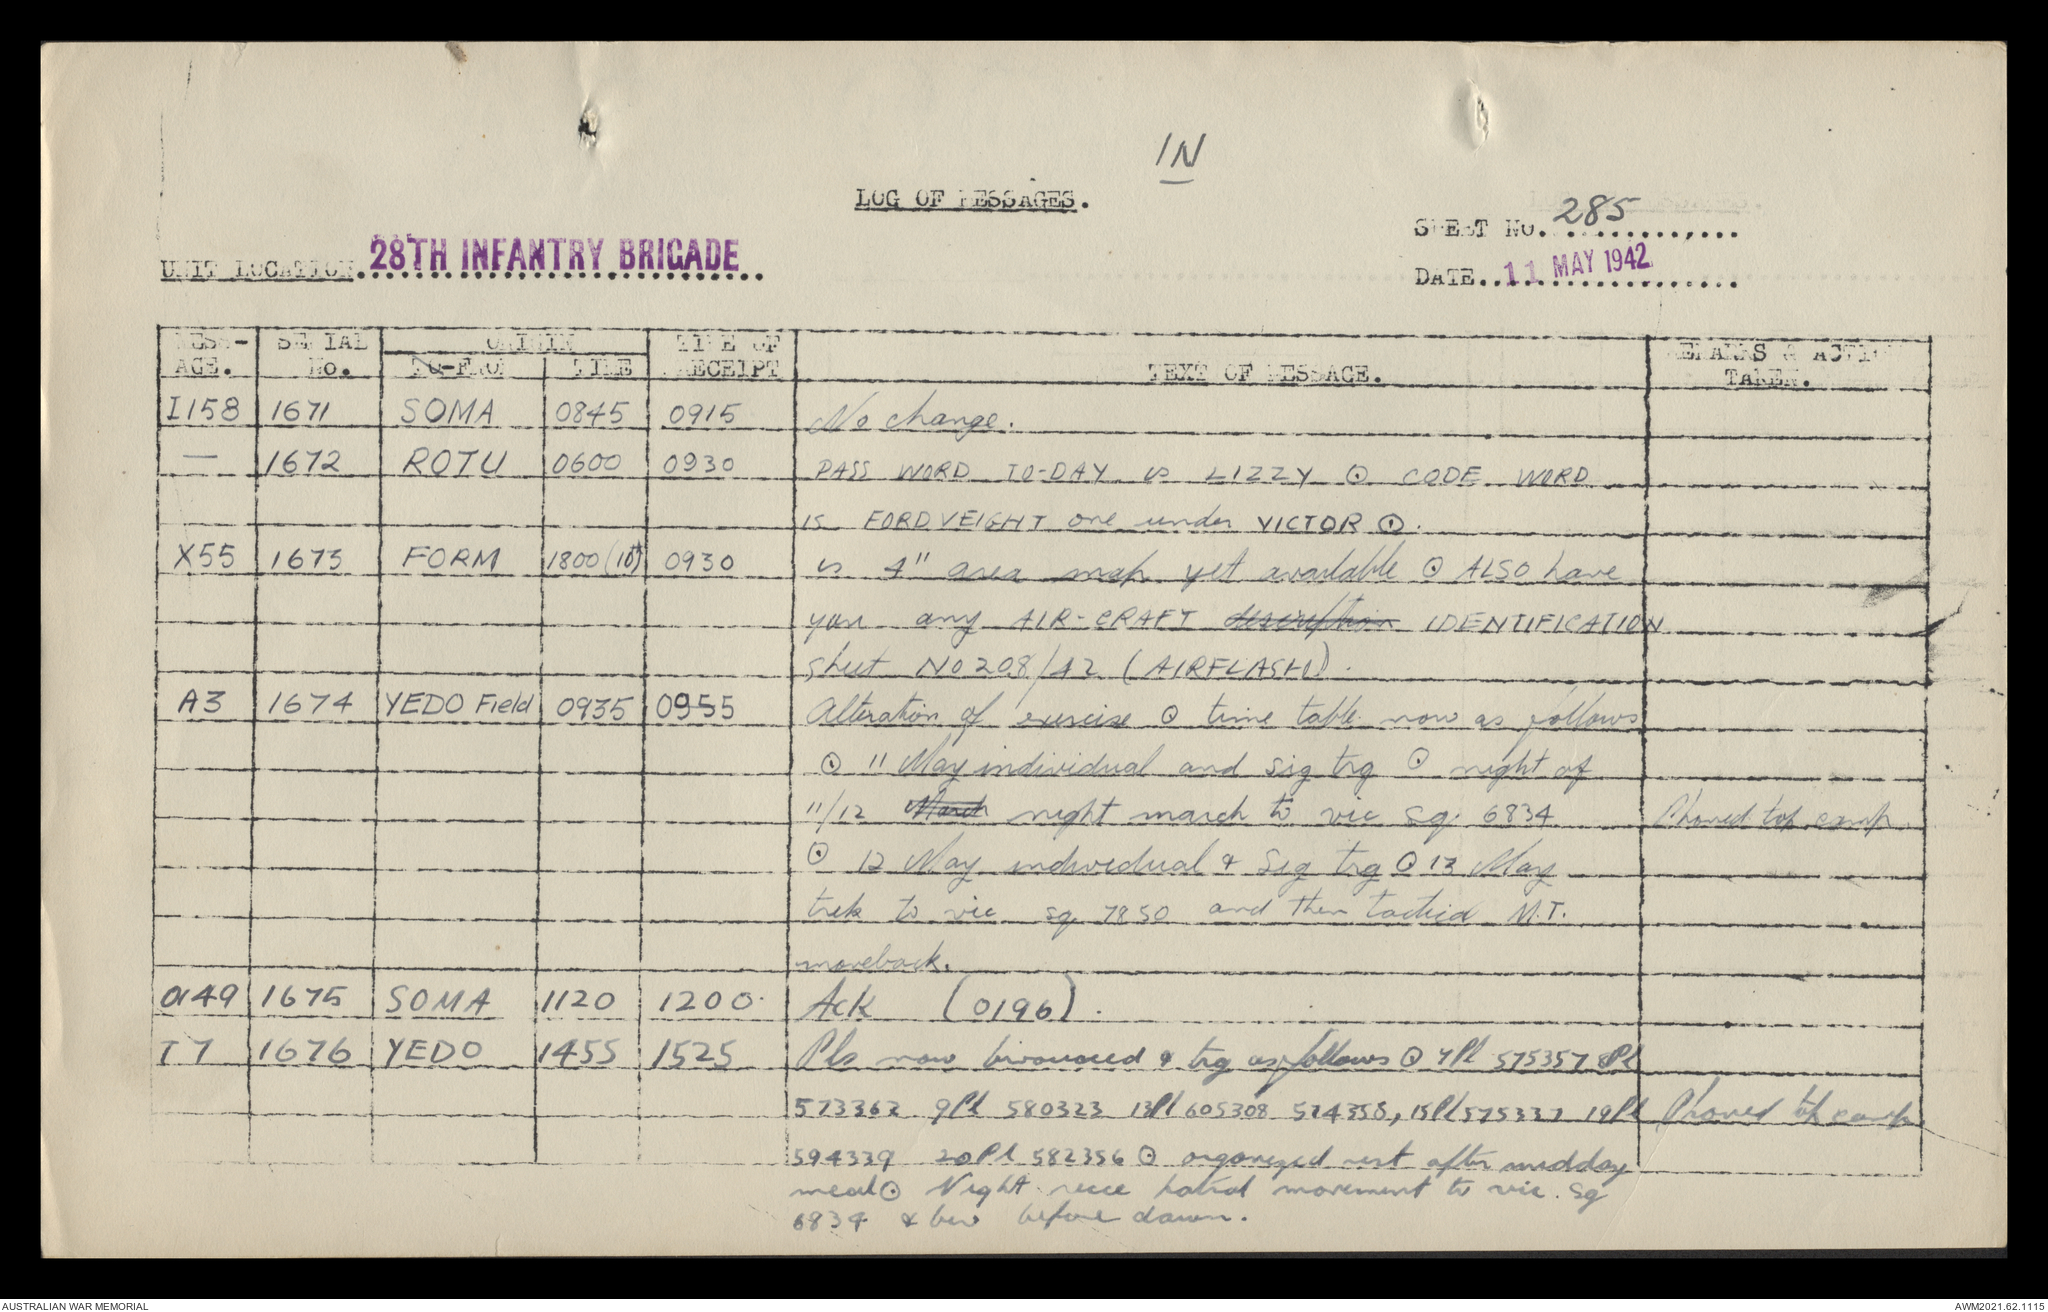 IN
LOG OF MESSAGES.
SHEET NO. 285
UNIT LOCATION. 28TH INFANTRY BRIGADE
DATE. 11 MAY 1942
MESS- SERIAL ORIGIN TIME OF
AGE. No. TO-FROM TIME RECEIPT TEXT OF MESSAGE. REMARKS & ACTION TAKEN.
I158 1671 SOMA 0845 0915 No change.
— 1672 ROTU 0600 0930 PASS WORD TO-DAY is LIZZY ⊙ CODE WORD
is FORDVEIGHT one under VICTOR ⊙.
X55 1673 FORM 1800 (10th) 0930 is 4" area map yet available ⊙ ALSO have
you any AIR-CRAFT description IDENTIFICATION
sheet No 208/42 (AIRFLASH).
A3 1674 YEDO Field 0935 0955 Alteration of exercise ⊙ time table now as follows
⊙ 11 May individual and sig trg ⊙ night of
11/12 March night march to vic sq. 6834 Phoned top camp
⊙ 12 May individual & Sig trg ⊙ 13 May
trek to vic sq 7850 and then tactical M.T.
moveback.
O149 1675 SOMA 1120 1200. Ack (O196).
I7 1676 YEDO 1455 1525 Pls now bivouaced & trg as follows ⊙ 7Pl 575357 8Pl
573362 9Pl 580323 13Pl 605308 574358, 15Pl 575337 19Pl Phoned top camp
594339 20Pl 582356 ⊙ organized rest after midday
meal ⊙ Night recce patrol movement to vic. sq
6834 & biv before dawn.
AUSTRALIAN WAR MEMORIAL
AWM2021.62.1115